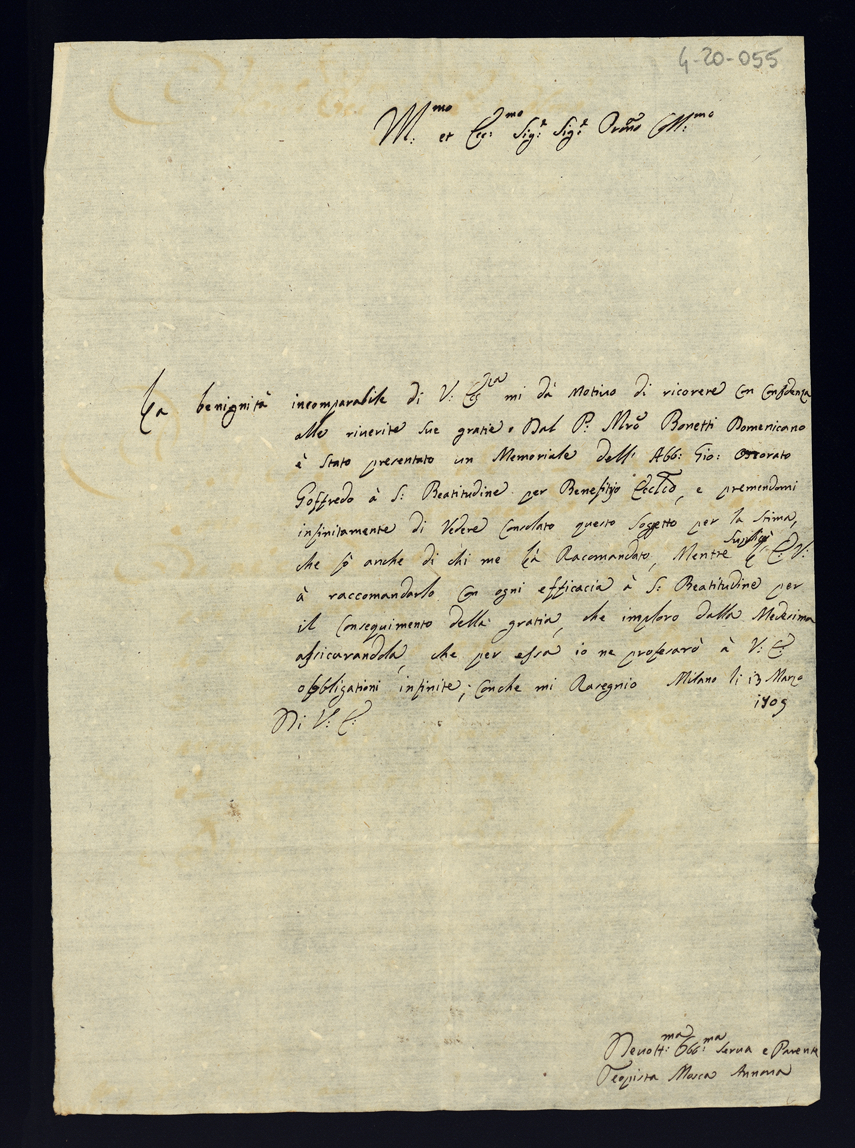 4-20-055
Ill:mo et Ecc:mo Sig:r Sig:r Prone Coll:mo
La benignità incomparabile di V: Ecc:za mi dà motivo di ricorere con confidenza
alle riverite sue gratie. Dal P: Mro Bonetti Domenicano
è stato presentato un Memoriale dell' Abb: Gio: Onorato
Goffredo à S: Beatitudine per Benefitio Eccl.co, e premendomi
infinitamente di vedere consolato questo sogetto per la stima,
che fò anche di chi me l'à racomandato, mentre supplico l'E: V:
à raccomandarlo con ogni efficacia à S: Beatitudine per
il conseguimento della gratia, che imploro dalla medesima
assicurandola, che per essa io ne professarò à V: E:
obbligationi infinite; conche mi rasegnio Milano li 13 Marzo
1709
Di V: E:
Devott:ma Obb:ma Serva e Parente
Teopista Mosca Annona